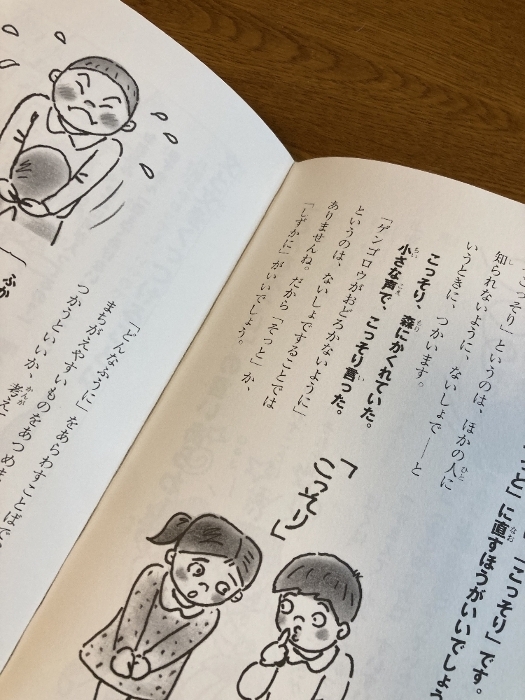 「こっそり」です。
と」に直すほうがいいでしょう
そり」というのは、ほかの人に
知られないように、ないしょで――と
いうときに、つかいます。
こっそり、森にかくれていた。
小さな声で、こっそり言った。
「ゲンゴロウがおどろかないように」
というのは、ないしょですることでは
ありませんね。だから「そっと」か、
「しずかに」がいいでしょう。
「こっそり」
「どんなふうに」をあらわすことばで
まちがえやすいものをあつめま
つかうといいか、考え
ふか